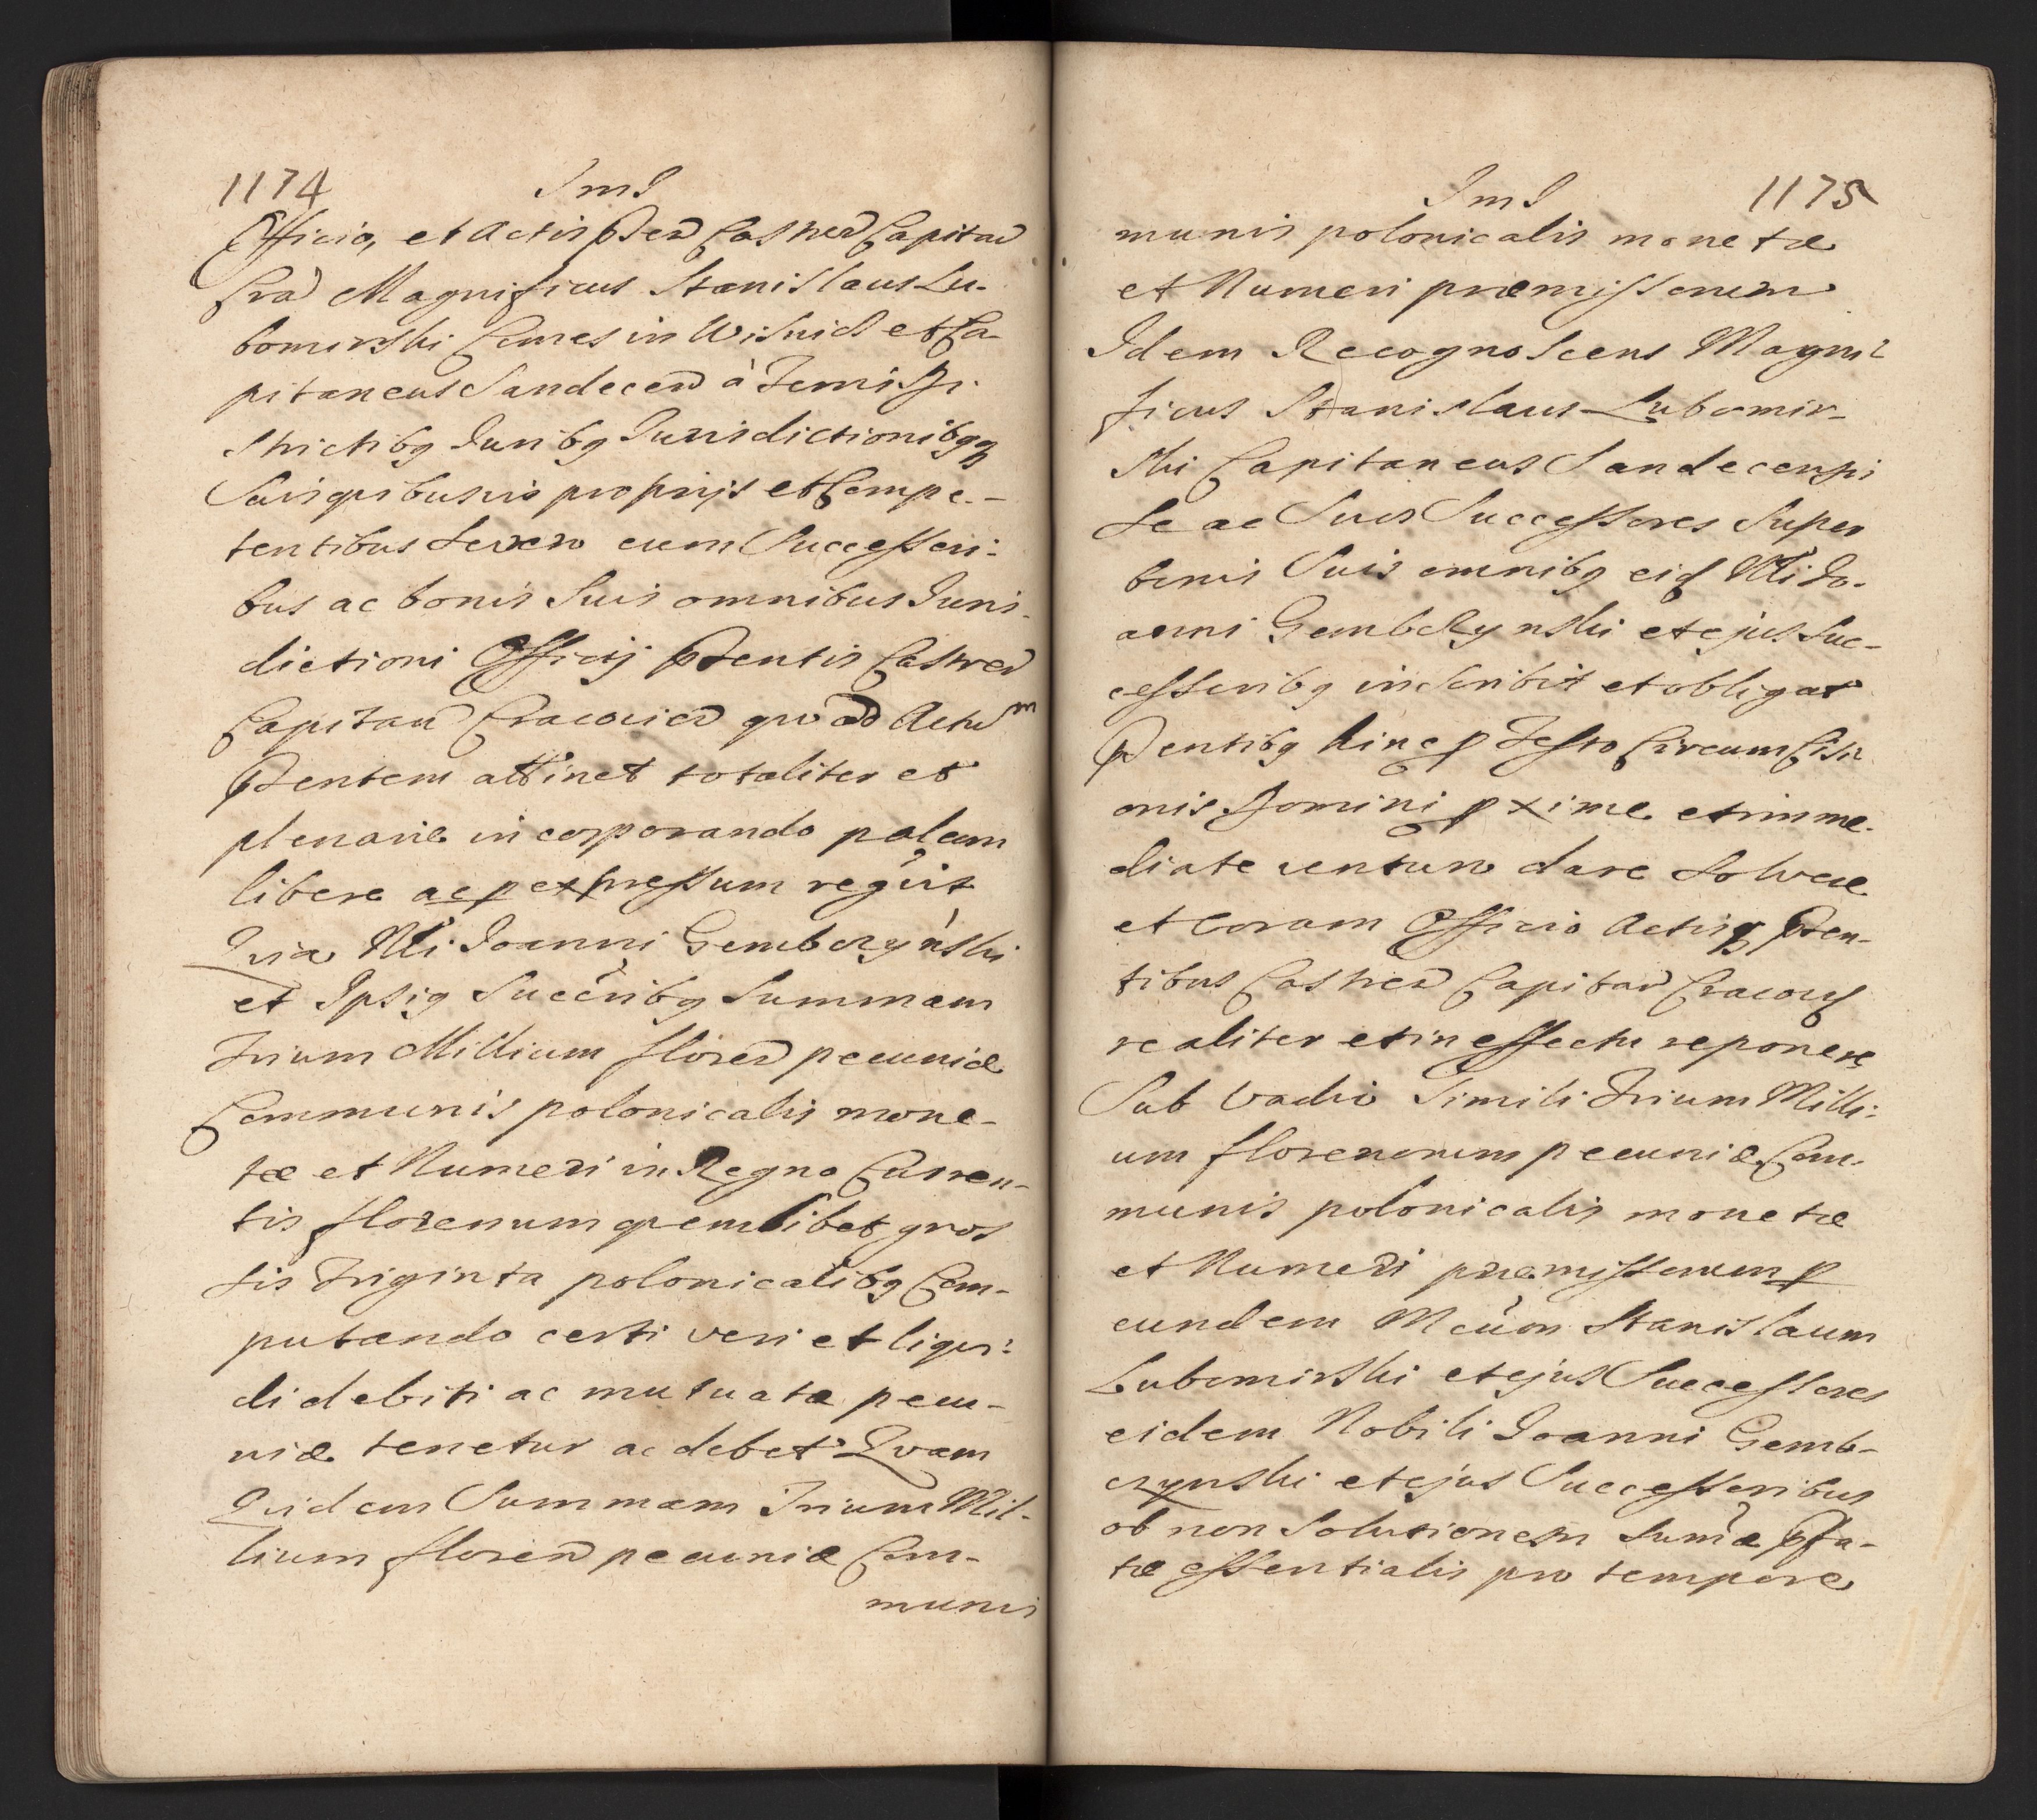 1174 Ims
Officio, et Actis Pñtu Castren Capitan
Cra Magnificus Stanislaus Lu-
bomirski Comes in Wisnicz et Ca-
pitaneus Sandecen à Terris Di-
strictibq Juribq Jurisdictionibqq
Suis quibusvis proprijs et Compe-
tentibus se vero cum Successori-
bus ac bonis Suis omnibus Juris-
dictioni Officij Pntis Castren
Capitan Cracovien quo ad Actum
Pntem attinet totaliter et
plenarie incorporando palam
libere ac p expressum recgit
Quia Nli Joanni Gembczyński
et Ipsiq Succribq Summam
Trium Millium floren pecuniæ
Communis polonicalis mone-
tæ et Numeri in Regno Curren-
tis florenum quemlibet gros
sis Triginta polonicalibq Com-
putando certi veri et liqui-
di debiti ac mutuatæ pecu-
niæ tenetur ac debet Quam
Quidem Summam Trium Mil-
lium floren pecuniæ Com-
munis
Ims 1175
munis polonicalis monetæ
et Numeri præmissorum
Idem Recognoscens Magni-
ficus Stanislaus Lubomir-
ski Capitaneus Sandecensis
se ac Suos Successores Super
bonis Suis omnibq eid Nli Jo-
anni Gembczynski et ejus Suc-
cessoribq inscribit et obligat
Pntibq hinc p Festo Circumcisi
onis Domini pxime et imme-
diate venturo dare Solvere
et Coram Officio Actisq Pnen-
tibus Castren Capitan Cracov
realiter et in effectu reponere
Sub Vadio Simili Trium Milli-
um florenorum pecuniæ Com-
munis polonicalis monetæ
et Numeri præmissorum p
eundem Mcum Stanislaum
Lubomirski et ejus Successores
eidem Nobili Joanni Gemb-
czynski et ejus Successoribus
ob non Solutionem Sumæ Pfa-
tæ essentialis pro tempore